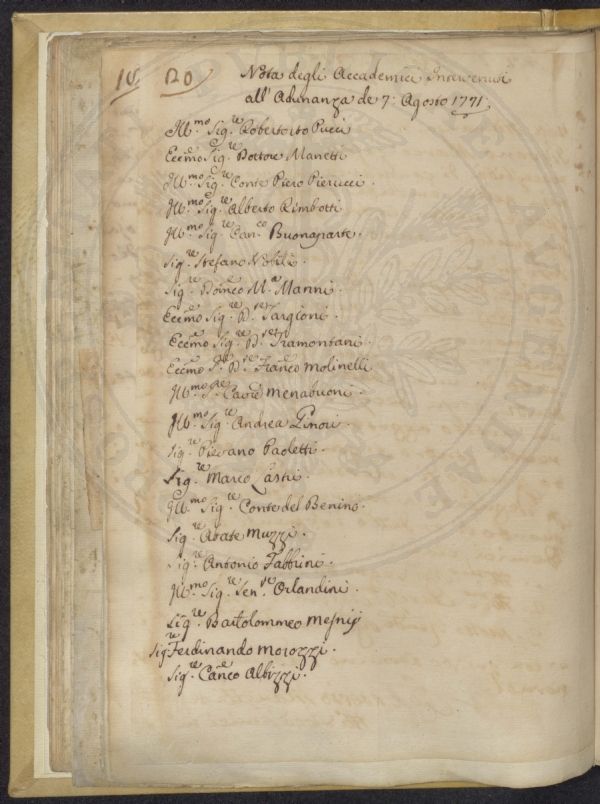 10. 120
Nota degli Accademici Intervenuti
all'Adunanza de 7: Agosto 1771.
Ill.mo Sig.re Roberto Pucci
Eccmo Sig.re Dottore Manetti
Ill.mo Sig.re Conte Piero Pierucci.
Ill.mo Sig.re Alberto Rimbotti
Ill.mo Sig.re Can.co Buonaparte.
Sig.re Stefano Nobili.
Sig.re Domco M.a Manni.
Eccmo Sig.re D.re Targioni.
Eccmo Sig.re D.re Tramontani.
Eccmo S.re D.re Franco Molinelli
Ill.mo S.re Cavre Menabuoni.
Ill.mo Sig.re Andrea Ginori.
Sig.re Pievano Paoletti.
Sig.re Marco Lastri.
Ill.mo Sig.re Conte del Benino.
Sig.re Abate Muzzi.
Sig.re Antonio Fabbrini.
Ill.mo Sig.re Sen.re Orlandini.
Sig.re Bartolommeo Mesnij
Sig.re Ferdinando Morozzi.
Sig.re Canco Albizzi.